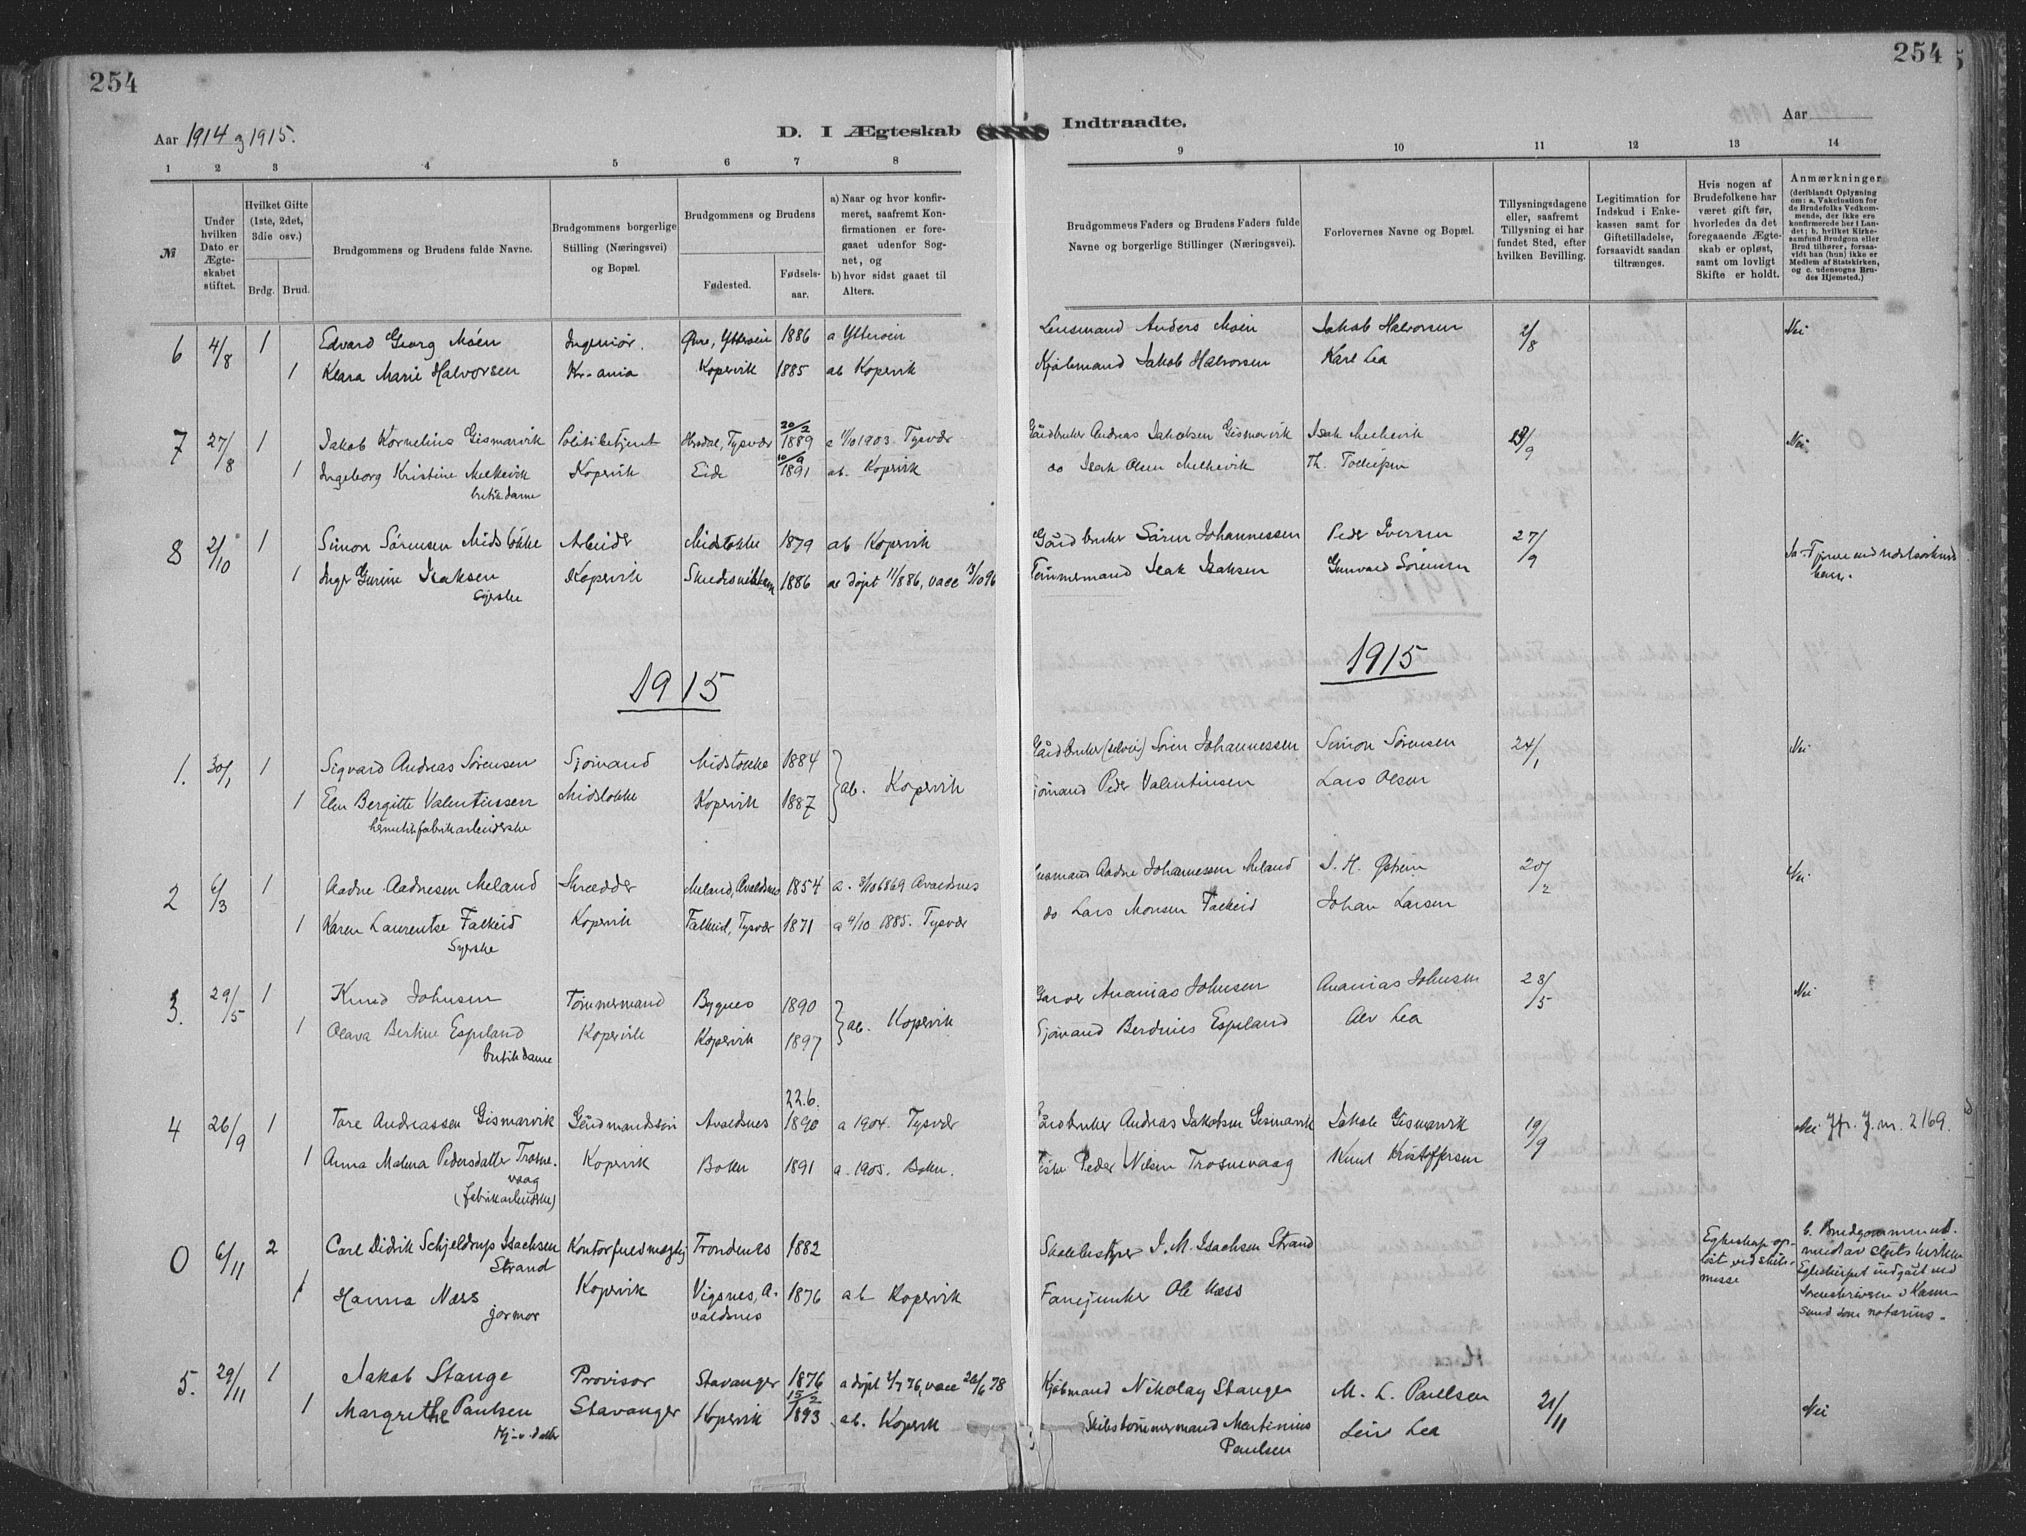 254
254
Aar 1914 og 1915.
D. I Ægteskab
Indtraadte.
Aar
1 2 3 4 5 6 7 8
9 10 11 12 13 14
№
Under hvilken Dato er Ægteskabet stiftet.
Hvilket Gifte (1ste, 2det, 3die osv.)
Brdg. Brud.
Brudgommens og Brudens fulde Navne.
Brudgommens borgerlige Stilling (Næringsvei) og Bopæl.
Brudgommens og Brudens
Fødested.
Fødselsaar.
a) Naar og hvor konfirmeret, saafremt Konfirmationen er foregaaet udenfor Sognet, og
b) hvor sidst gaaet til Alters.
Brudgommens Faders og Brudens Faders fulde Navne og borgerlige Stillinger (Næringsvei).
Forlovernes Navne og Bopæl.
Tillysningsdagene eller, saafremt Tillysning ei har fundet Sted, efter hvilken Bevilling.
Legitimation for Indskud i Enkekassen samt for Giftetilladelse, forsaavidt saadan tiltrænges.
Hvis nogen af Brudefolkene har været gift før, hvorledes da det foregaaende Ægteskab er opløst, samt om lovligt Skifte er holdt.
Anmærkninger
(deriblandt Oplysning om: a. Vakcination for de Brudefolks Vedkommende, der ikke ere konfirmerede her i Landet; b. hvilket Kirkesamfund Brudgom eller Brud tilhører, forsaavidt han (hun) ikke er Medlem af Statskirken, og c. udensogns Brudes Hjemsted.)
6 4/8 1 Edvard Georg Moen Ingeniør. Øvre, Ytterøen 1886 a Ytterøen Lensmand Anders Moen Jakob Halvorsen 2/8 Nei
1 Klara Marie Halvorsen Kr-ania Kopervik 1885 ab Kopervik Kjøbmand Jakob Halvorsen Karl Lea
7 27/8 1 Jakob Kornelius Gismarvik Politibetjent Hesdal, Tysvær 20/2 1889 a 4/10 1903. Tysvær Gårdbruker Andreas Jakobsen Gismarvik Isak Melkevik /9 Nei
1 Ingeborg Kristine Melkevik Kopervik Eide 10/9 1891 ab. Kopervik do Isak Olsen Melkevik Th. Tollefsen
butikdame
8 2/10 1 Simon Sørensen Midstokke Arbeider Midstokke 1879 ab Kopervik Gårdbruker Sören Johannessen Peder Iversen 27/9
1 Inger Gurine Isaksen Kopervik 1886 Tømmermand Isak Isaksen Gunvald Sörensen
Syerske
1915
1915
1. 30/1 1 Sigvard Andreas Sørensen Sjømand Midstokke 1884 ab. Kopervik Gårdbruker (selveier) Sören Johannessen Simon Sørensen 24/1 Nei
1 Elen Bergitte Valentinsen Midstokke Kopervik 1887 Sjømand Peder Valentinsen Lars Olsen
hermetikfabrikarbeiderske
2 6/3 1 Aadne Aadnesen Meland Skrædder Meland, Avaldsnes 1854 a. 3/10 1869 Avaldsnes Aadne Johannessen Meland J. H. Østrem 20/2 Nei
1 Karen Laurentse Falkeid Kopervik Falkeid, Tysvær 1871 a 4/10 1885. Tysvær do Lars Monsen Falkeid Johan Larsen
Syerske
3. 29/5 1 Knud Johnsen Tømmermand Bygnes 1890 ab. Kopervik Garver Ananias Johnsen Ananias Johnsen 23/5 Nei
1 Olava Bertine Espeland Kopervik Kopervik 1897 Sjømand Berdines Espeland Alv Lea
butikdame
4 26/9 1 Tore Andreassen Gismarvik Gårdmandssøn Avaldsnes 22.6. 1890 a 1904. Tysvær Gårdbruker Andreas Jakobsen Gismarvik Jakob Gismarvik 19/9 Nei Jfr. J.nr. 2169.
1 Anna Malena Pedersdatter Trosnevaag Kopervik Bokn 1891 a. 1905. Bokn. Fisker Peder Nilsen Trosnevaag Knut Kristoffersen
(fabrikarbeiderske)
0 6/11 2 Carl Didrik Schjeldrup Isachsen Strand Kontorfuldmægtig Trondenes 1882 Skolebestyrer J. M. Isachsen Strand Egteskap opløst ved skilsmisse b. Brudgommen utmeldt av statskirken Egteskapet indgåt ved Sorenskriveren i Karmsund som notarius.
1 Hanna Næss Kopervik Vigsnes, Avaldsnes 1876 ab Kopervik Fanejunker Ole Næss
jormor
5. 29/11 1 Jakob Stange Provisor Stavanger 1876 a døpt 2/7 76, vacc 26/6 78 Kjøbmand Nikolay Stange M. L. Paulsen 21/11 Nei
1 Margrethe Paulsen Stavanger Kopervik 15/2 1893 ab. Kopervik Skibstømmermand Martinius Paulsen Leiv Lea
Hj-v. datter